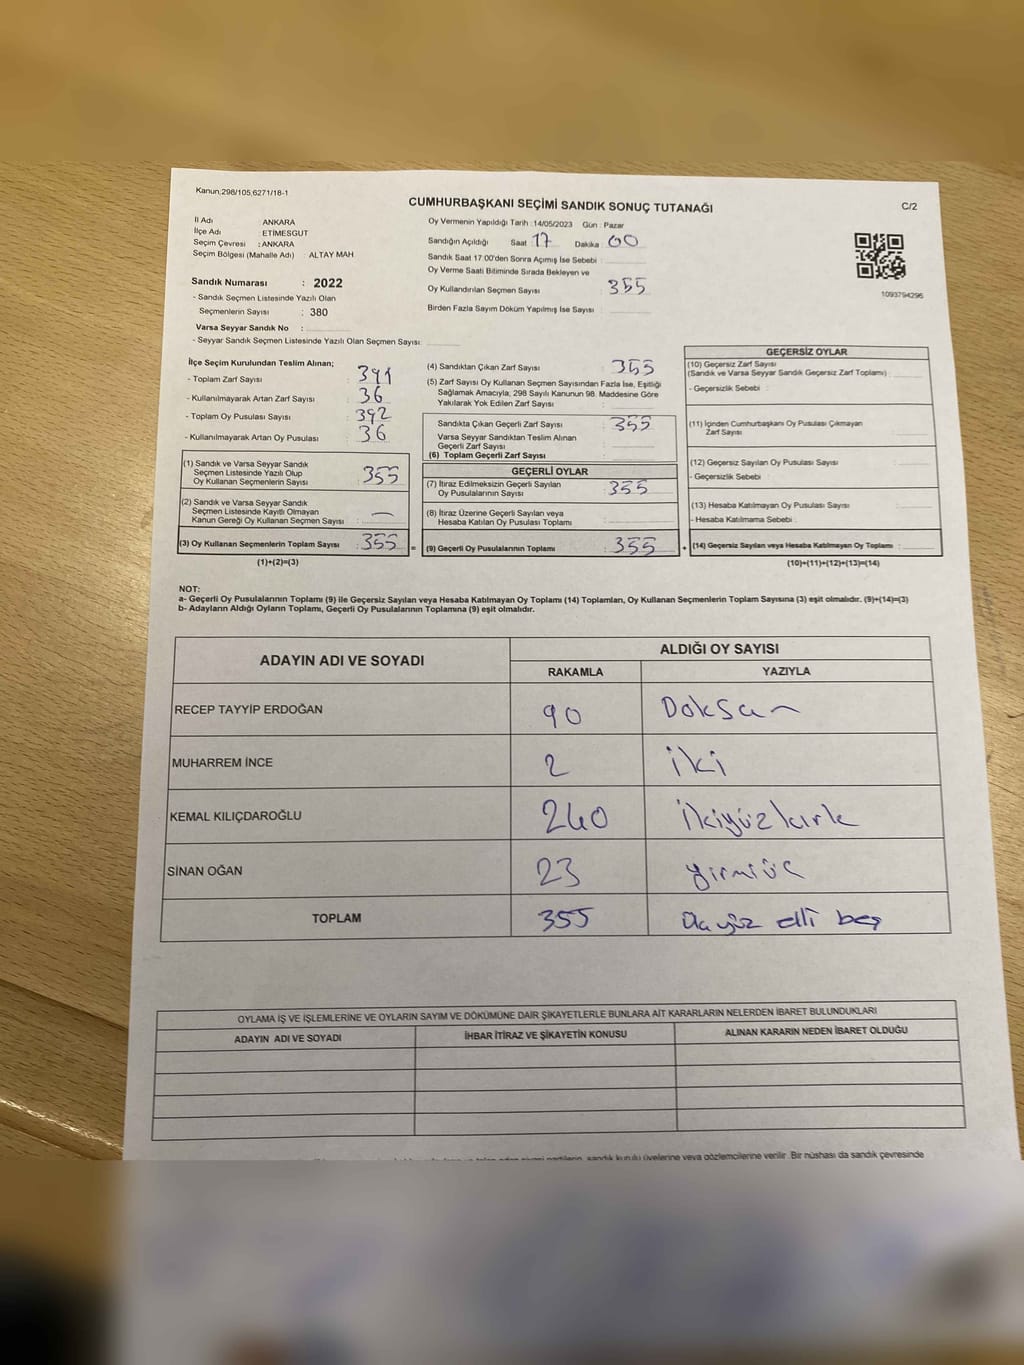 Kanun,298/105,6271/18-1
CUMHURBAŞKANI SEÇİMİ SANDIK SONUÇ TUTANAĞI
C/2
İl Adı ANKARA
İlçe Adı : ETİMESGUT
Seçim Çevresi : ANKARA
Seçim Bölgesi (Mahalle Adı) ALTAY MAH
Oy Vermenin Yapıldığı Tarih : 14/05/2023 Gün : Pazar
Sandığın Açıldığı Saat 17 Dakika 00
Sandık Saat 17:00'den Sonra Açımış İse Sebebi :
Oy Verme Saati Bitiminde Sırada Bekleyen ve
Oy Kullandırılan Seçmen Sayısı : 355
Birden Fazla Sayım Döküm Yapılmış İse Sayısı :
1093794296
Sandık Numarası : 2022
- Sandık Seçmen Listesinde Yazılı Olan
Seçmenlerin Sayısı : 380
Varsa Seyyar Sandık No :
- Seyyar Sandık Seçmen Listesinde Yazılı Olan Seçmen Sayısı :
İlçe Seçim Kurulundan Teslim Alınan;
- Toplam Zarf Sayısı : 391
- Kullanılmayarak Artan Zarf Sayısı : 36
- Toplam Oy Pusulası Sayısı : 392
- Kullanılmayarak Artan Oy Pusulası : 36
(1) Sandık ve Varsa Seyyar Sandık
Seçmen Listesinde Yazılı Olup
Oy Kullanan Seçmenlerin Sayısı : 355
(2) Sandık ve Varsa Seyyar Sandık
Seçmen Listesinde Kayıtlı Olmayan
Kanun Gereği Oy Kullanan Seçmen Sayısı : —
(3) Oy Kullanan Seçmenlerin Toplam Sayısı : 355 =
(1)+(2)=(3)
(4) Sandıktan Çıkan Zarf Sayısı : 355
(5) Zarf Sayısı Oy Kullanan Seçmen Sayısından Fazla İse, Eşitliği
Sağlamak Amacıyla, 298 Sayılı Kanunun 98. Maddesine Göre
Yakılarak Yok Edilen Zarf Sayısı :
Sandıkta Çıkan Geçerli Zarf Sayısı : 355
Varsa Seyyar Sandıktan Teslim Alınan
Geçerli Zarf Sayısı :
(6) Toplam Geçerli Zarf Sayısı :
GEÇERLİ OYLAR
(7) İtiraz Edilmeksizin Geçerli Sayılan
Oy Pusulalarının Sayısı : 355
(8) İtiraz Üzerine Geçerli Sayılan veya
Hesaba Katılan Oy Pusulası Toplamı :
(9) Geçerli Oy Pusulalarının Toplamı : 355 +
GEÇERSİZ OYLAR
(10) Geçersiz Zarf Sayısı
(Sandık ve Varsa Seyyar Sandık Geçersiz Zarf Toplamı) :
- Geçersizlik Sebebi :
(11) İçinden Cumhurbaşkanı Oy Pusulası Çıkmayan
Zarf Sayısı :
(12) Geçersiz Sayılan Oy Pusulası Sayısı :
- Geçersizlik Sebebi :
(13) Hesaba Katılmayan Oy Pusulası Sayısı :
- Hesaba Katılmama Sebebi :
(14) Geçersiz Sayılan veya Hesaba Katılmayan Oy Toplamı :
(10)+(11)+(12)+(13)=(14)
NOT:
a- Geçerli Oy Pusulalarının Toplamı (9) ile Geçersiz Sayılan veya Hesaba Katılmayan Oy Toplamı (14) Toplamları, Oy Kullanan Seçmenlerin Toplam Sayısına (3) eşit olmalıdır. (9)+(14)=(3)
b- Adayların Aldığı Oyların Toplamı, Geçerli Oy Pusulalarının Toplamına (9) eşit olmalıdır.
ADAYIN ADI VE SOYADI ALDIĞI OY SAYISI
RAKAMLA YAZIYLA
RECEP TAYYİP ERDOĞAN 90 Doksan
MUHARREM İNCE 2 iki
KEMAL KILIÇDAROĞLU 240 ikiyüzkırk
SİNAN OĞAN 23 yirmiüç
TOPLAM 355 üçyüz elli beş
OYLAMA İŞ VE İŞLEMLERİNE VE OYLARIN SAYIM VE DÖKÜMÜNE DAİR ŞİKAYETLERLE BUNLARA AİT KARARLARIN NELERDEN İBARET BULUNDUKLARI
ADAYIN ADI VE SOYADI İHBAR İTİRAZ VE ŞİKAYETİN KONUSU ALINAN KARARIN NEDEN İBARET OLDUĞU
sandık kurulu üyelerine veya gözlemcilerine verilir. Bir nüshası da sandık çevresinde